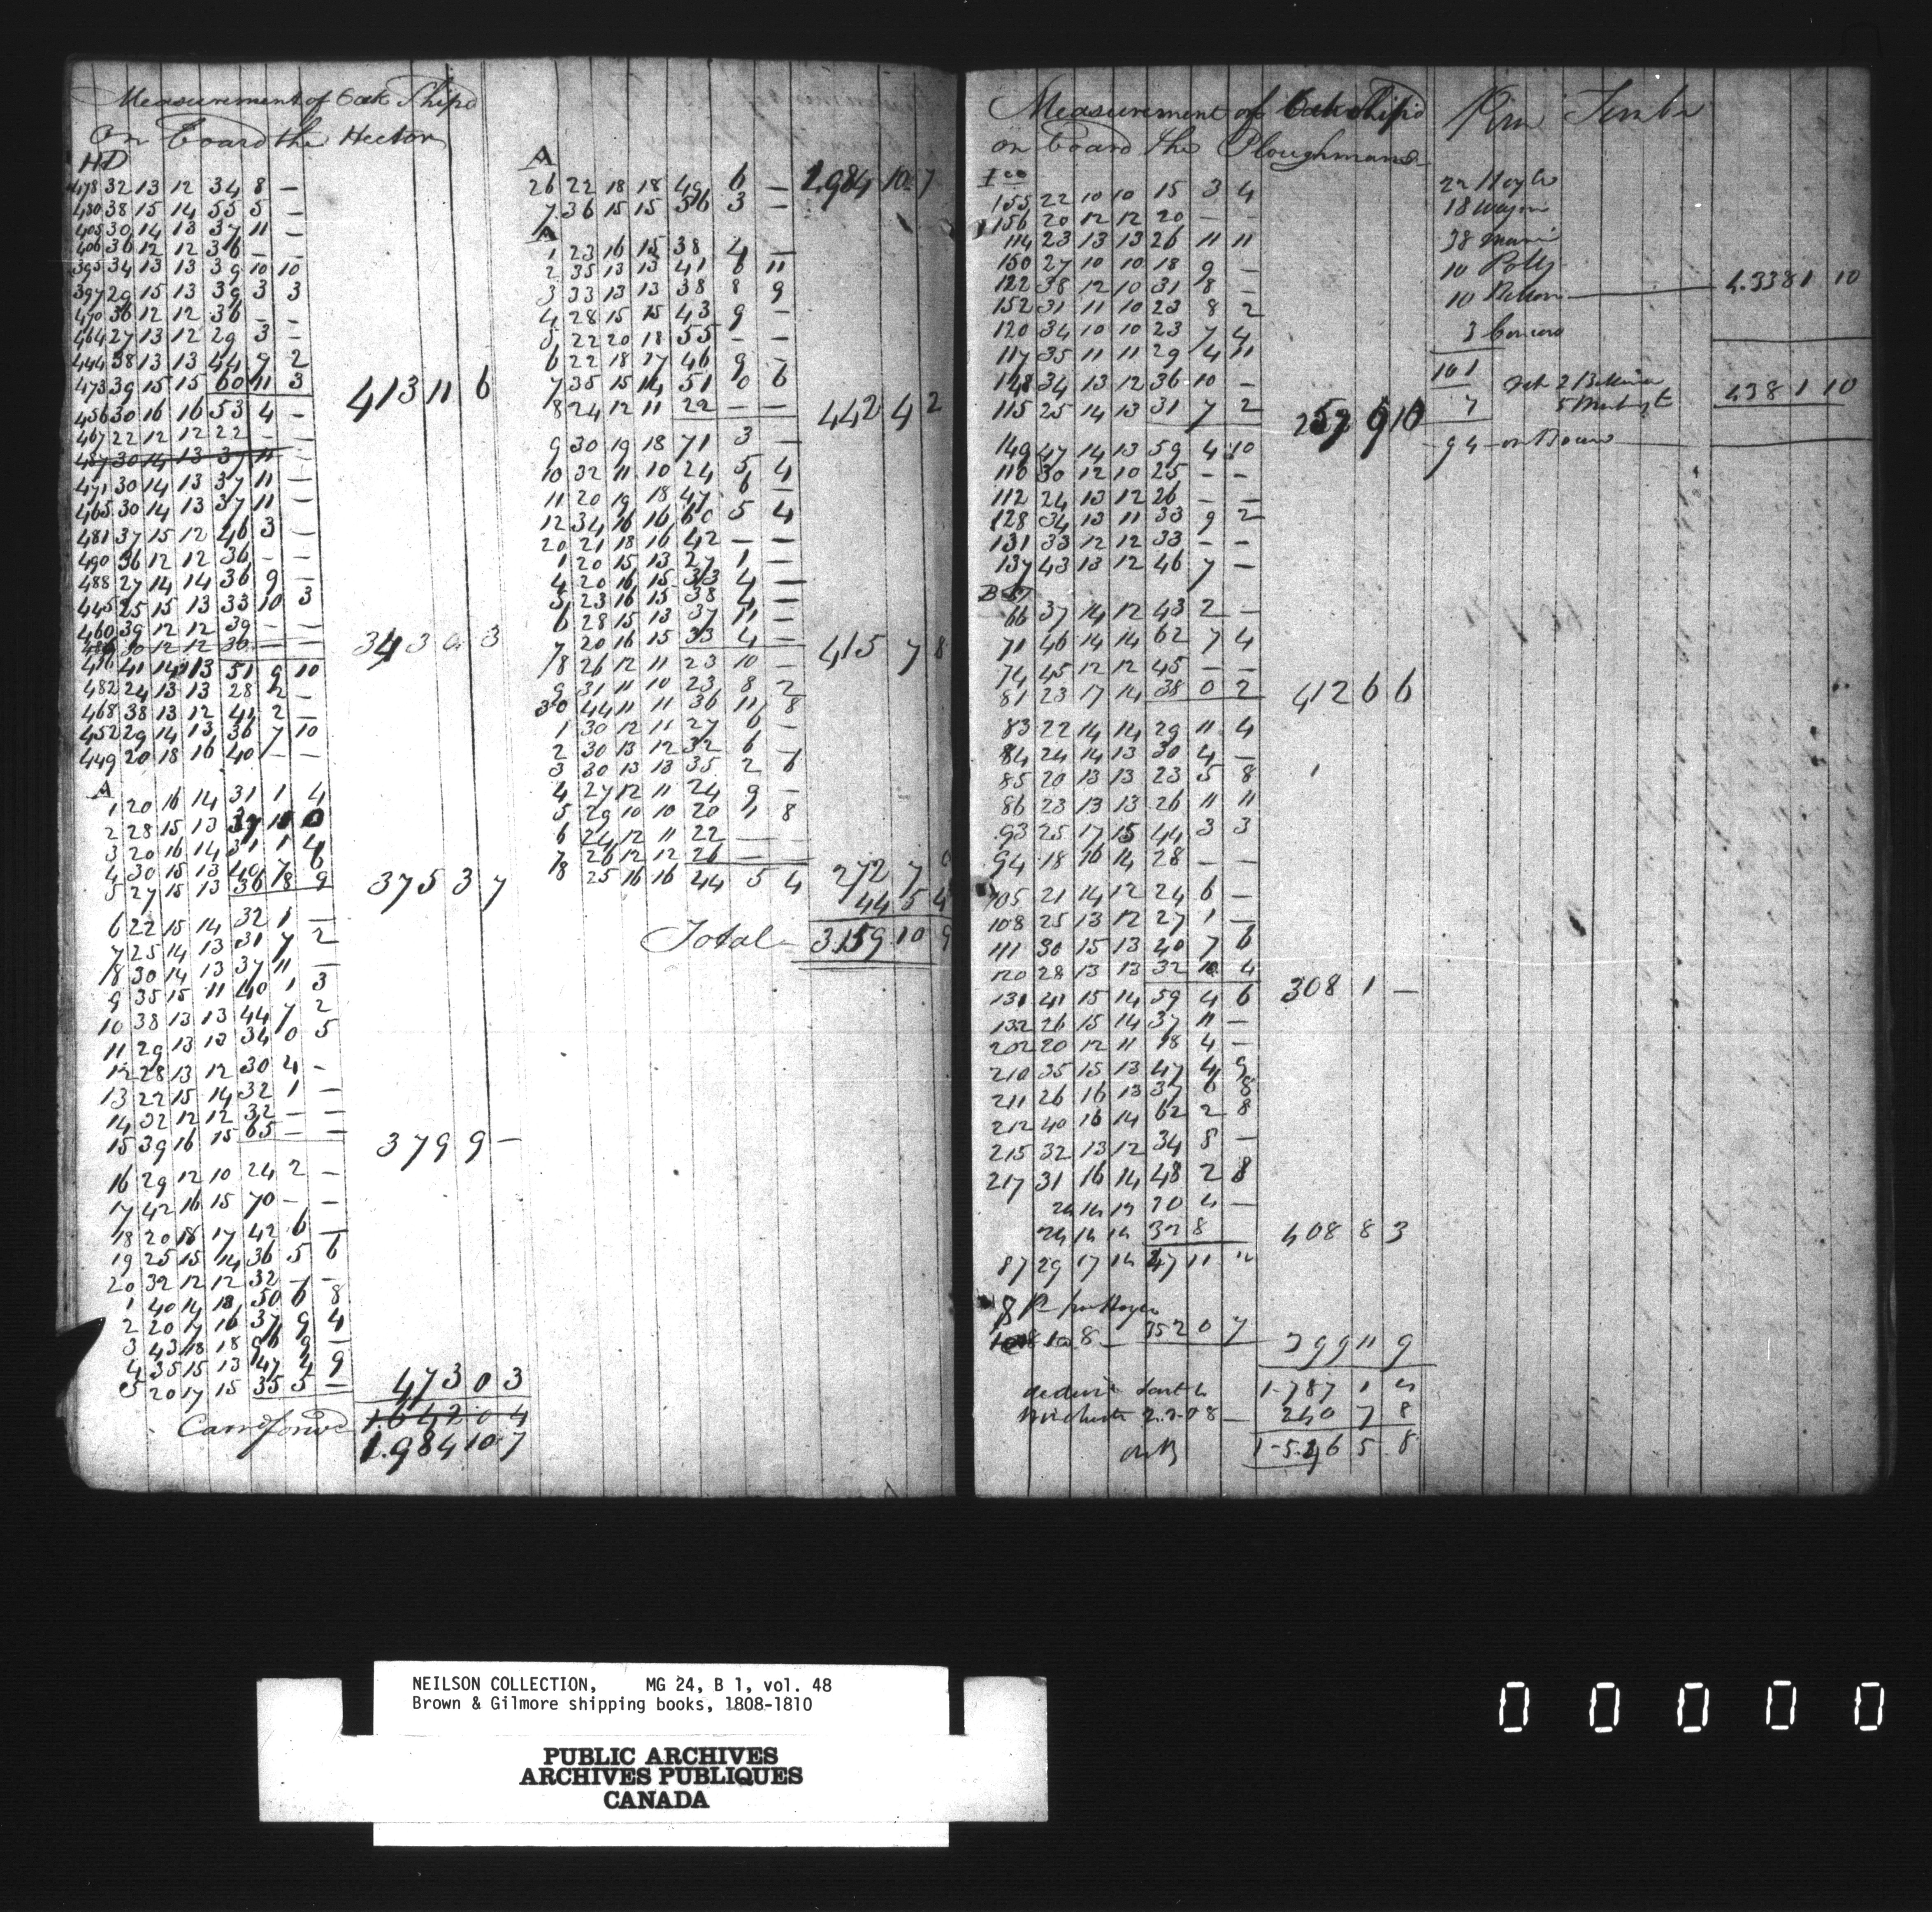 Measurement of Oak Ship'd
On board the Hector
HD
478 32 13 12 34 8 —
480 38 15 14 55 5 —
405 30 14 13 37 11 —
406 36 12 12 36 — —
395 34 13 13 39 10 10
397 29 15 13 39 3 3
470 36 12 12 36 — —
464 27 13 12 29 3 —
444 38 13 13 44 9 2
473 39 15 15 60 11 3
413 11 6
456 30 16 16 53 4 —
467 22 12 12 22 — —
487 30 14 13 37 11 —
471 30 14 13 37 11 —
465 30 14 13 37 11 —
481 37 15 12 46 3 —
490 36 12 12 36 — —
488 27 14 14 36 9 —
445 25 15 13 33 10 3
460 39 12 12 39 — —
486 30 12 12 30 — —
343 0 3
476 41 14 13 51 9 10
482 24 13 13 28 2 —
468 38 13 12 41 2 —
452 29 14 13 36 7 10
449 20 18 16 40 — —
A
1 20 16 14 31 1 4
2 28 15 13 37 11 0
3 20 16 14 31 1 4
4 30 15 13 40 7 6
5 27 15 13 36 8 9
375 3 7
6 22 15 14 32 1 —
7 25 14 13 31 7 2
8 30 14 13 37 11 —
9 35 15 11 40 1 3
10 38 13 13 44 7 2
11 29 13 13 34 0 5
12 28 13 12 30 4 -
13 22 15 14 32 1 —
14 32 12 12 32 — —
15 39 16 15 65 — —
379 9 —
16 29 12 10 24 2 —
17 42 16 15 70 — —
18 20 18 17 42 6 —
19 25 15 14 36 5 6
20 32 12 12 32 — —
1 40 14 13 50 6 8
2 20 17 16 37 9 4
3 43 18 18 96 9 —
4 35 15 13 47 4 9
5 20 17 15 35 5 —
473 0 3
Carr'd forw'd 1.642 0 4
1.984 10 7
A
1.984 10 7
26 22 18 18 49 6 —
7 36 15 15 56 3 —
A
1 23 16 15 38 4 —
2 35 13 13 41 6 11
3 33 13 13 38 8 9
4 28 15 15 43 9 —
5 22 20 18 55 — —
6 22 18 17 46 9 —
7 35 15 14 51 0 6
8 24 12 11 22 — —
442 4 2
9 30 19 18 71 3 —
10 32 11 10 24 5 4
11 20 19 18 47 6 —
12 34 16 16 60 5 4
20 21 18 16 42 — —
1 20 15 13 27 1 —
4 20 16 15 33 4 —
5 23 16 15 38 4 —
6 28 15 13 37 11 —
7 20 16 15 33 4 —
415 7 8
8 26 12 11 23 10 —
9 31 11 10 23 8 2
30 44 11 11 36 11 8
1 30 12 11 27 6 —
2 30 13 12 32 6 —
3 30 13 13 35 2 6
4 27 12 11 24 9 —
5 29 10 10 20 1 8
6 24 12 11 22 — —
7 26 12 12 26 — —
272 7 0
8 25 16 16 44 5 4
44 5 4
Total 3.159 10 9
Measurement of Oak Ship'd
on board the Ploughman
155 22 10 10 15 3 4
156 20 12 12 20 — —
114 23 13 13 26 11 11
150 27 10 10 18 9 —
122 38 12 10 31 8 —
152 31 11 10 23 8 2
120 34 10 10 23 7 4
117 35 11 11 29 4 11
148 34 13 12 36 10 —
115 25 14 13 31 7 2
257 9 10
149 47 14 13 59 4 10
110 30 12 10 25 — —
112 24 13 12 26 — —
128 34 13 11 33 9 2
131 33 12 12 33 — —
137 43 13 12 46 7 —
66 37 14 12 43 2 —
71 46 14 14 62 7 4
74 45 12 12 45 — —
81 23 17 14 38 0 2
412 6 6
83 22 14 14 29 11 4
84 24 14 13 30 4 —
85 20 13 13 23 5 8
86 23 13 13 26 11 11
93 25 17 15 44 3 3
94 18 16 14 28 — —
105 21 14 12 24 6 —
108 25 13 12 27 1 —
111 30 15 13 40 7 6
120 28 13 13 32 10 4
308 1 —
131 41 15 14 59 4 6
132 26 15 14 37 11 —
202 20 12 11 18 4 —
210 35 15 13 47 4 9
211 26 16 13 37 6 8
212 40 16 14 62 2 8
215 32 13 12 34 8 —
217 31 16 14 48 2 8
24 14 13 30 4 —
24 14 14 32 8
408 8 3
87 29 17 14 47 11
352 0 7
399 11 9
1.787 1 4
240 7 8
1.546 5 8
Timber
10 Polly
1.3381 10
101
7
1381 10
94 on Board
NEILSON COLLECTION, MG 24, B 1, vol. 48
Brown & Gilmore shipping books, 1808-1810
PUBLIC ARCHIVES
ARCHIVES PUBLIQUES
CANADA
0 0 0 0 0